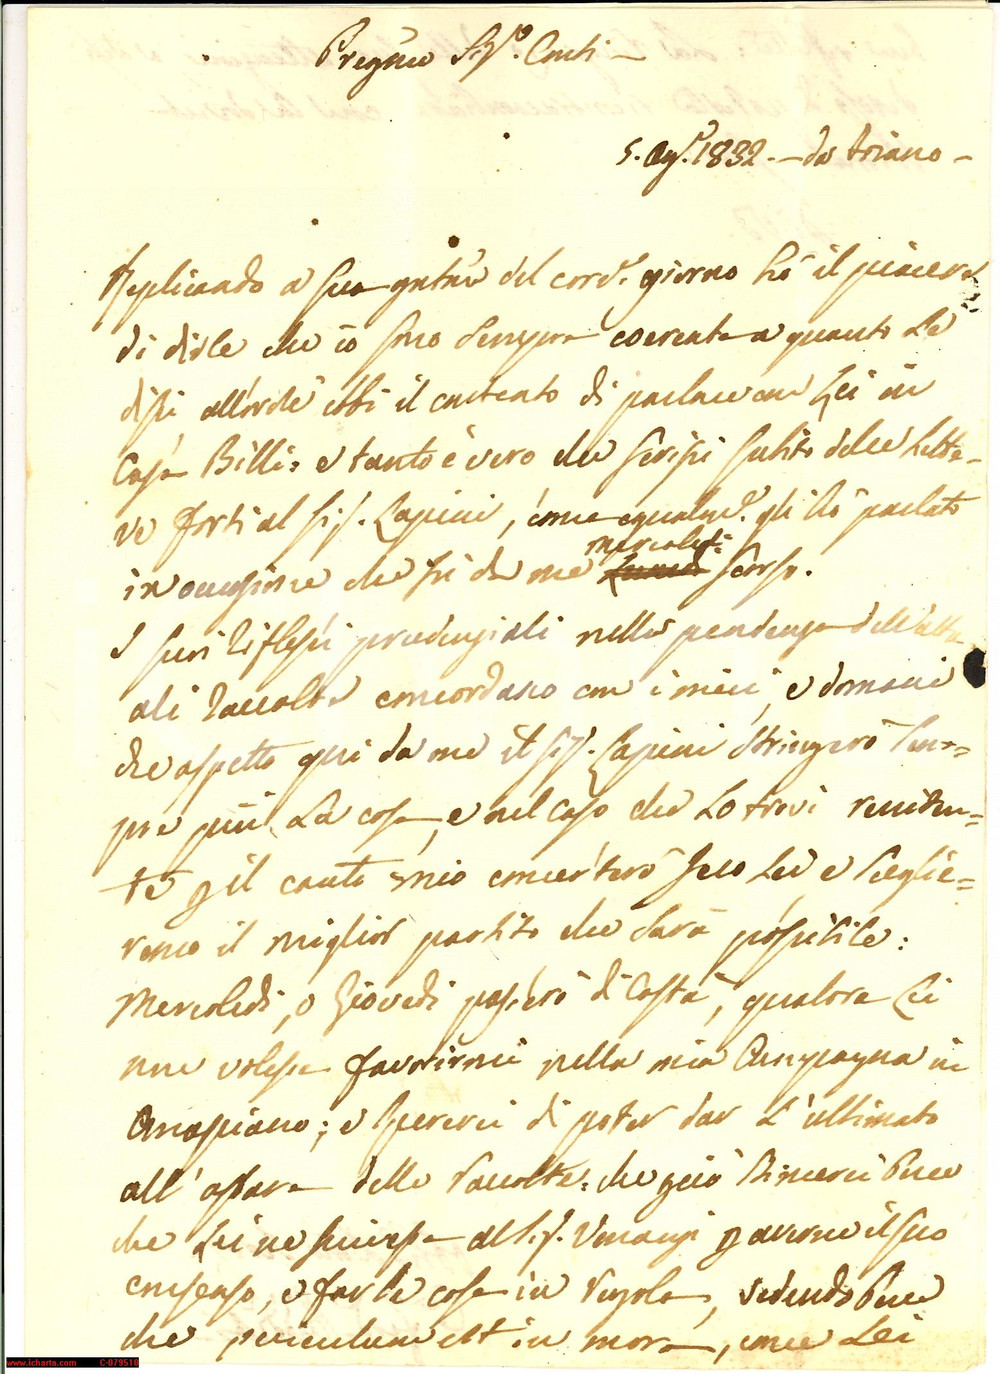 Pregmo Sigr. Conti –
5. Ag. 1832. – da Ariano –
Replicando a Sua del cord. giorno hò il piacere
di dirle che io sono sempre coerente a quanto Le
dissi allorchè ebbi il contento di parlare con Lei in
Casa Billi: e tanto è vero che scrissi subito delle Lette=
re forti al Sig. Lapini, come egualm. gli hò parlato
mercoledì
in occasione che fù da me scorso.
I suoi riflessi prudenziali nella pendenza dell'
concordano con i miei, e domani
che aspetto qui da me il Sig. Lapini stringerò sem=
pre più La cosa, e nel caso che Lo trovi reniten=
te p il canto mio concerterò seco Lei e sceglie=
remo il miglior partito che sarà possibile:
Mercoledì, o Giovedì passerò di Costà, qualora Lei
non volesse favorirmi nella mia Campagna in
; e spererei di poter dar L'ultimato
all'affare delle raccolte: che già
che Lei ne al Sig. p averne il suo
consenso, e far le cose in regola,
che periculum est in mora, come Lei
www.icharta.com C-079510